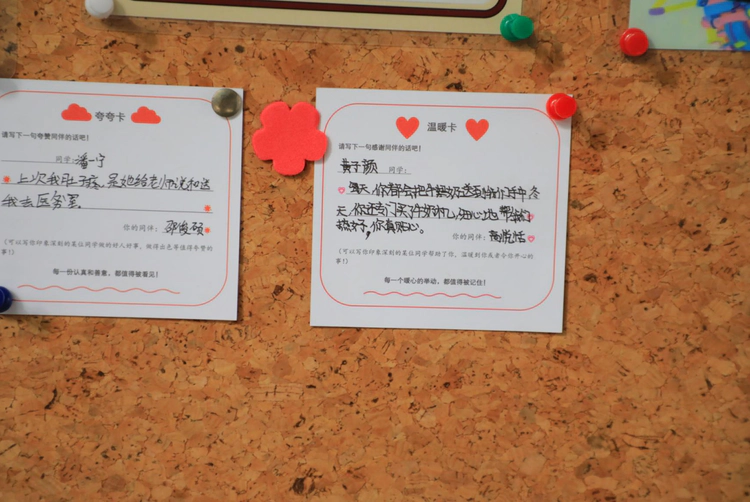 夸夸卡
请写下一句夸赞同伴的话吧!
同学:潘一宁
上次我肚子疼,是她给老师说和送
我去医务室
你的同伴:邓俊硕
(可以写你印象深刻的某位同学做的好人好事、做得出色等值得夸赞的
事!)
每一份认真和善意,都值得被看见!
温暖卡
请写下一句感谢同伴的话吧!
黄子颜 同学:
每天,你都会把牛奶送到我们手中冬
天,你还专门买牛奶,细心地帮我们
热好,你真贴心。
你的同伴:高悦恬
(可以写你印象深刻的某位同学帮助了你、温暖到你或者令你开心的
事!)
每一个暖心的举动,都值得被记住!